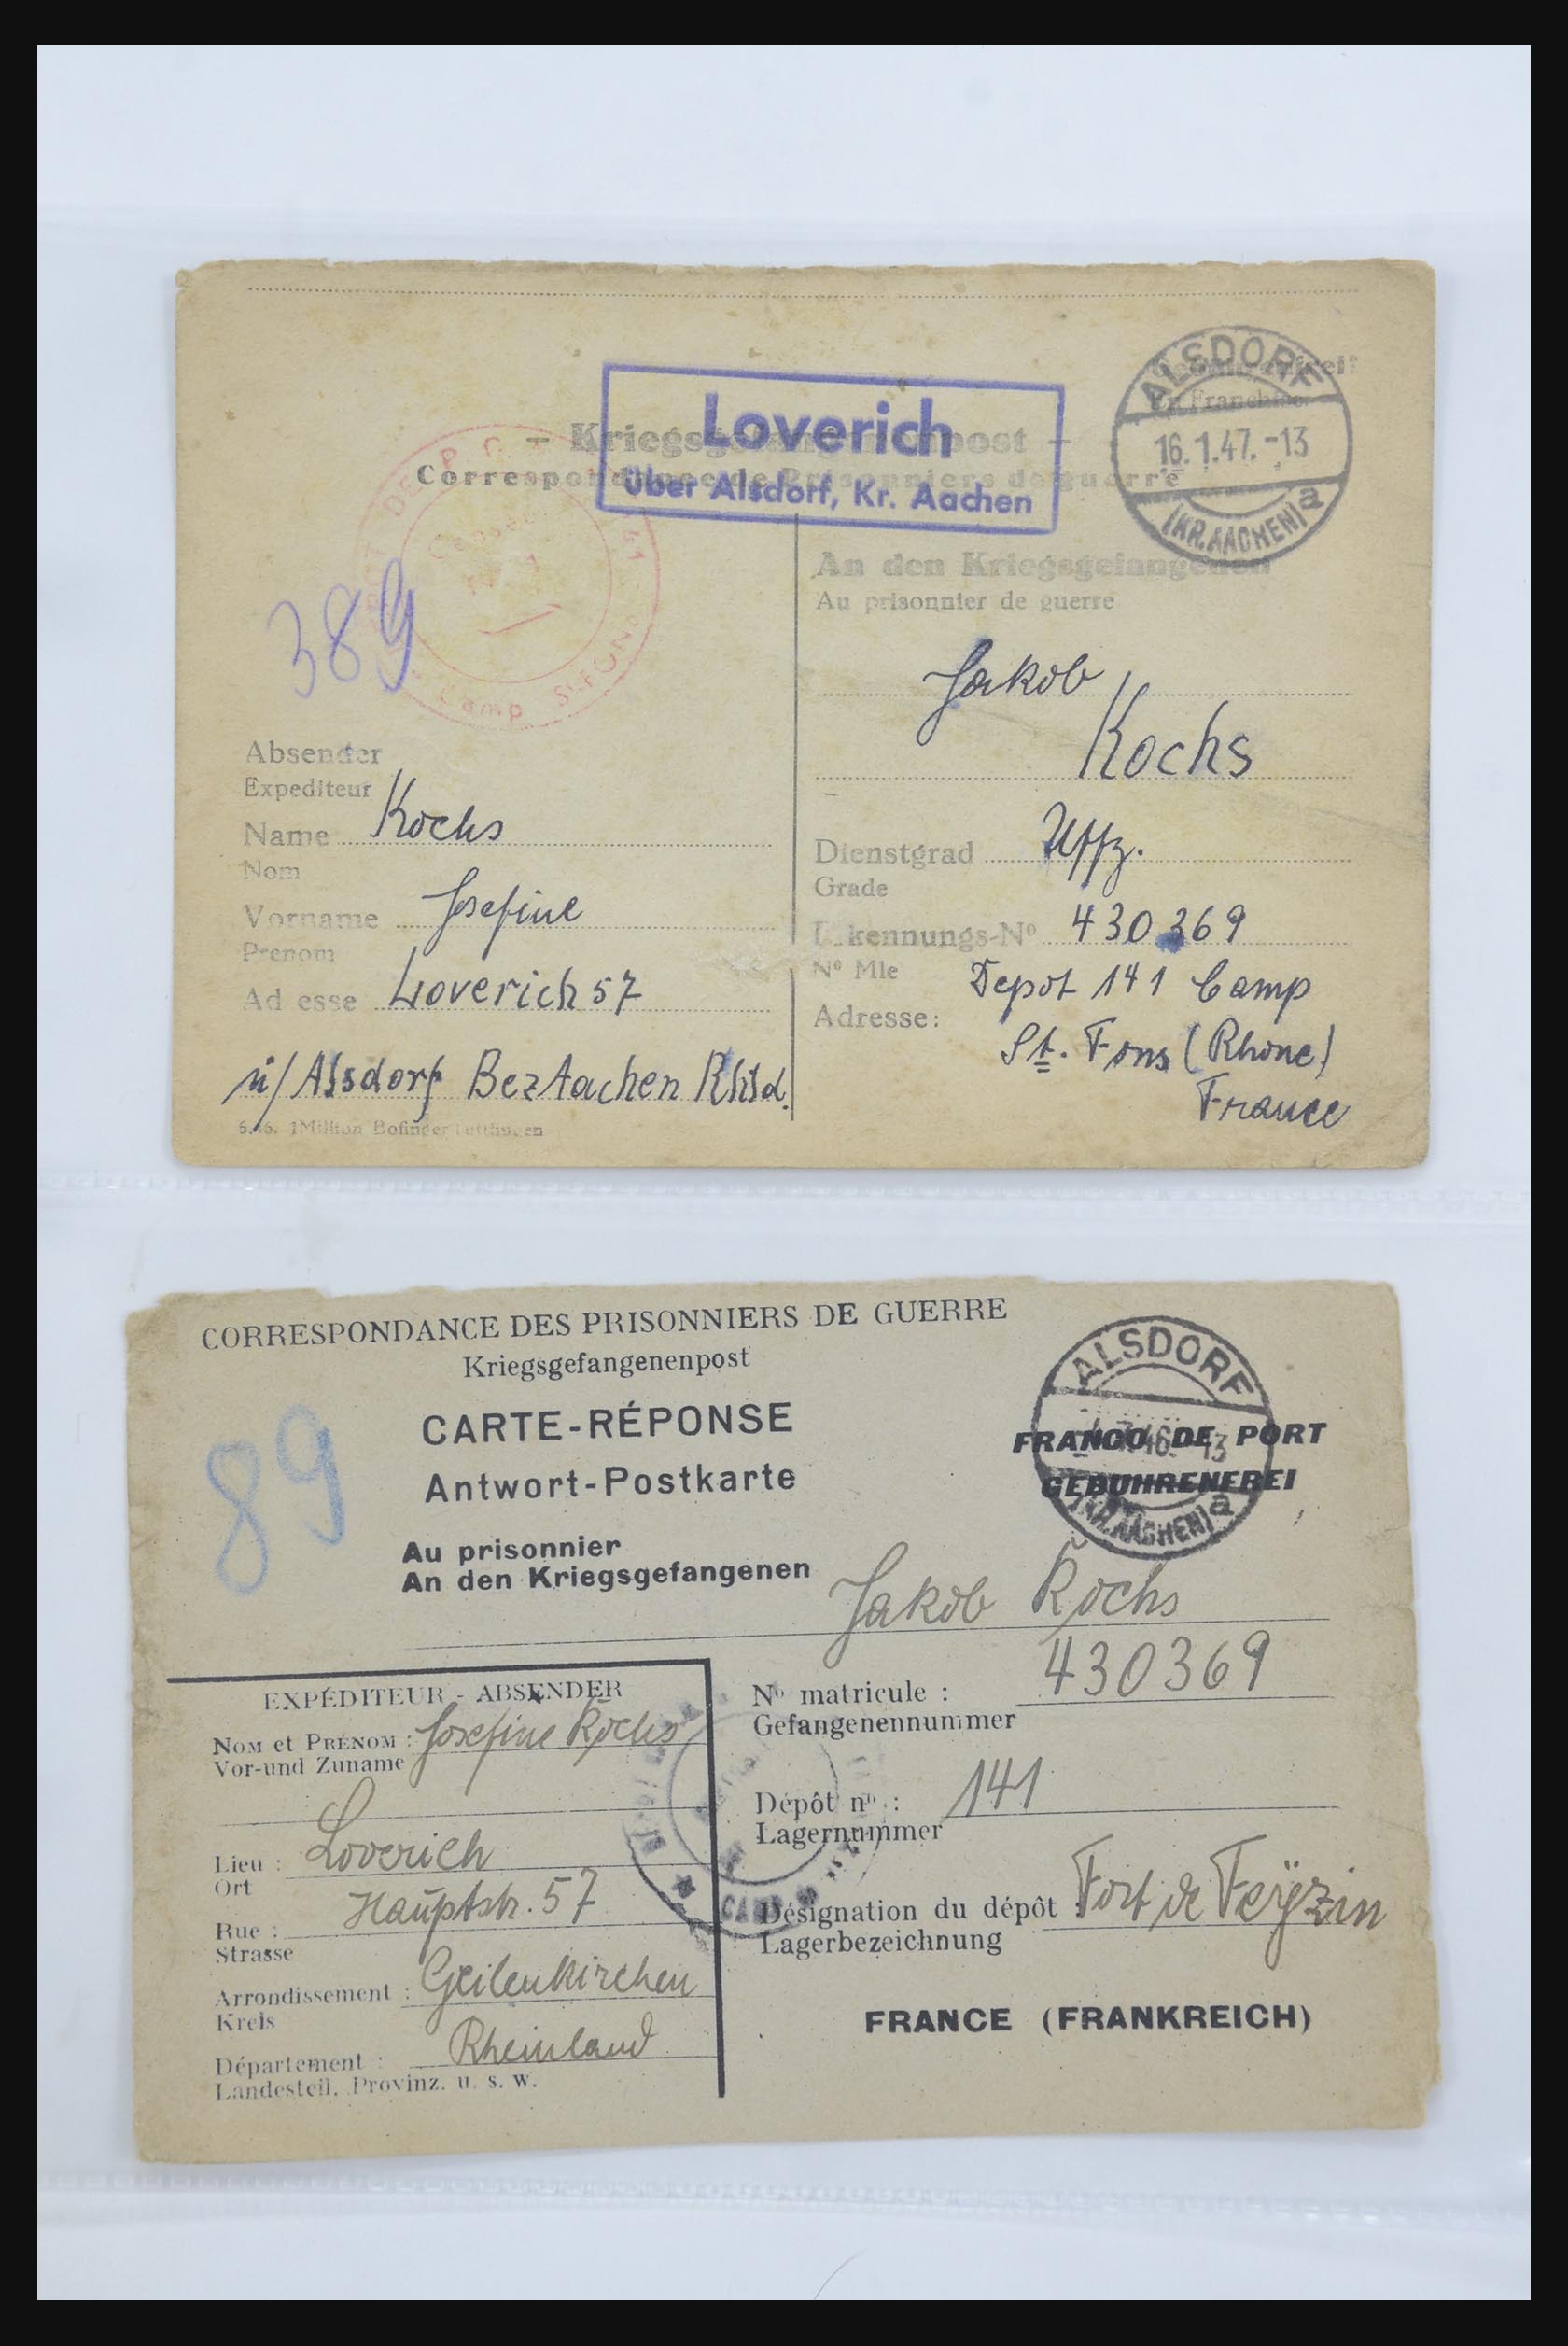 Loverich
über Alsdorf, Kr. Aachen
ALSDORF
16.1.47.-13
(KR. AACHEN) a
En Franchise
– Kriegsgefangenenpost –
Correspondance de Prisonniers de guerre
Camp St-FONS
389
An den Kriegsgefangenen
Au prisonnier de guerre
Jakob
Kochs
Dienstgrad Uffz.
Grade
Erkennungs-Nº 430369
Nº Mle
Adresse: Depot 141 Camp
St. Fons (Rhone)
France
Absender
Expediteur
Name Kochs
Nom
Vorname Josefine
Prenom
Adresse Loverich 57
ü/Alsdorf Bez Aachen Rhld.
1Million Bofinger
CORRESPONDANCE DES PRISONNIERS DE GUERRE
Kriegsgefangenenpost
CARTE-RÉPONSE
Antwort-Postkarte
ALSDORF
46.-13
(KR. AACHEN) a
FRANCO DE PORT
GEBÜHRENFREI
89
Au prisonnier
An den Kriegsgefangenen
Jakob Kochs
Nº matricule : 430369
Gefangenennummer
Dépôt nº : 141
Lagernummer
Désignation du dépôt : Fort de Feyzin
Lagerbezeichnung
FRANCE (FRANKREICH)
EXPÉDITEUR - ABSENDER
NOM et PRÉNOM : Josefine Kochs
Vor-und Zuname
Lieu : Loverich
Ort
Rue : Hauptstr. 57
Strasse
Arrondissement : Geilenkirchen
Kreis
Département : Rheinland
Landesteil, Provinz. u. s. w.